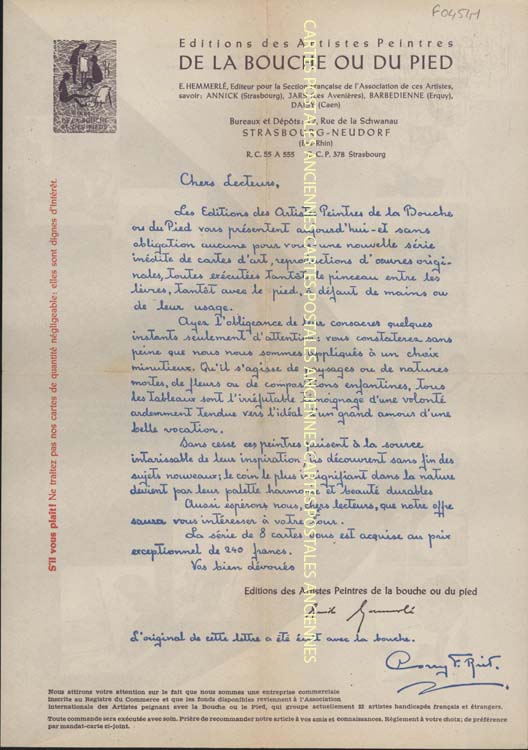 F0454M
Editions des Artistes Peintres
DE LA BOUCHE OU DU PIED
E. HEMMERLÉ, Editeur pour la Section Française de l'Association de ces Artistes,
savoir: ANNICK (Strasbourg), JARS (Les Avenières), BARBEDIENNE (Erquy),
DANY (Caen)
Bureaux et Dépôts: Rue de la Schwanau
STRASBOURG-NEUDORF
(Bas-Rhin)
R. C. 55 A 555 C. C. P. 378 Strasbourg
Chers Lecteurs,
Les Editions des Artistes Peintres de la Bouche
ou du Pied vous présentent aujourd'hui - et sans
obligation aucune pour vous - une nouvelle série
inédite de cartes d'art, reproductions d'œuvres origi-
nales, toutes exécutées tantôt le pinceau entre les
lèvres, tantôt avec le pied, à défaut de mains ou
de leur usage.
Ayez l'obligeance de leur consacrer quelques
instants seulement d'attention: vous constaterez sans
peine que nous nous sommes appliqués à un choix
minutieux. Qu'il s'agisse de paysages ou de natures
mortes, de fleurs ou de compositions enfantines, tous
les tableaux sont l'irréfutable témoignage d'une volonté
ardemment tendue vers l'idéal, d'un grand amour d'une
belle vocation.
Sans cesse ces peintres puisent à la source
intarissable de leur inspiration: ils découvrent sans fin des
sujets nouveaux; le coin le plus insignifiant dans la nature
devient par leur palette harmonie et beauté durables
Aussi espérons nous, chers lecteurs, que notre offre
saura vous intéresser à votre tour.
La série de 8 cartes vous est acquise au prix
exceptionnel de 240 francs.
Vos bien dévoués
Editions des Artistes Peintres de la bouche ou du pied
L'original de cette lettre a été écrit avec la bouche.
Nous attirons votre attention sur le fait que nous sommes une entreprise commerciale
inscrite au Registre du Commerce et que les fonds disponibles reviennent à l'Association
internationale des Artistes peignant avec la Bouche ou le Pied, qui groupe actuellement 22 artistes handicapés français et étrangers.
Toute commande sera exécutée avec soin. Prière de recommander notre article à vos amis et connaissances. Règlement à votre choix; de préférence
par mandat-carte ci-joint.
S'il vous plaît! Ne traitez pas nos cartes de quantité négligeable: elles sont dignes d'intérêt.
CARTES POSTALES ANCIENNES
CARTES POSTALES ANCIENNES
CARTES POSTALES ANCIENNES